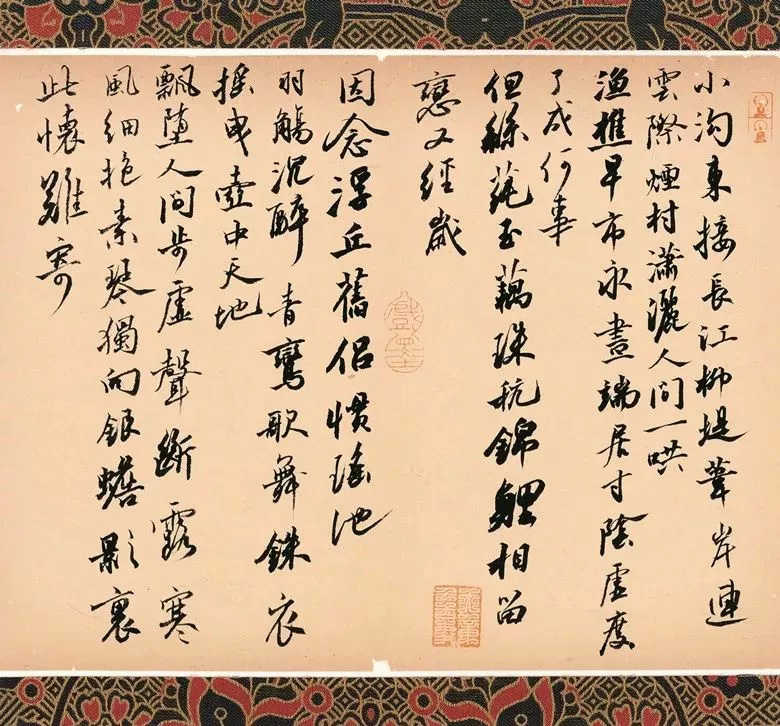 小溝東接長江柳堤葦岸連
雲際煙村瀟灑人間一哄
漁樵早市永晝端居寸陰虛度
了成何事
但絲蒓玉藕珠秔錦鯉相留
戀又經歲
因念浮丘舊侶慣瑤池
羽觴沉醉青鸞歌舞銖衣
搖曳壺中天地
飄墮人間步虛聲斷露寒
風細抱素琴獨向銀蟾影裏
此懷難寄